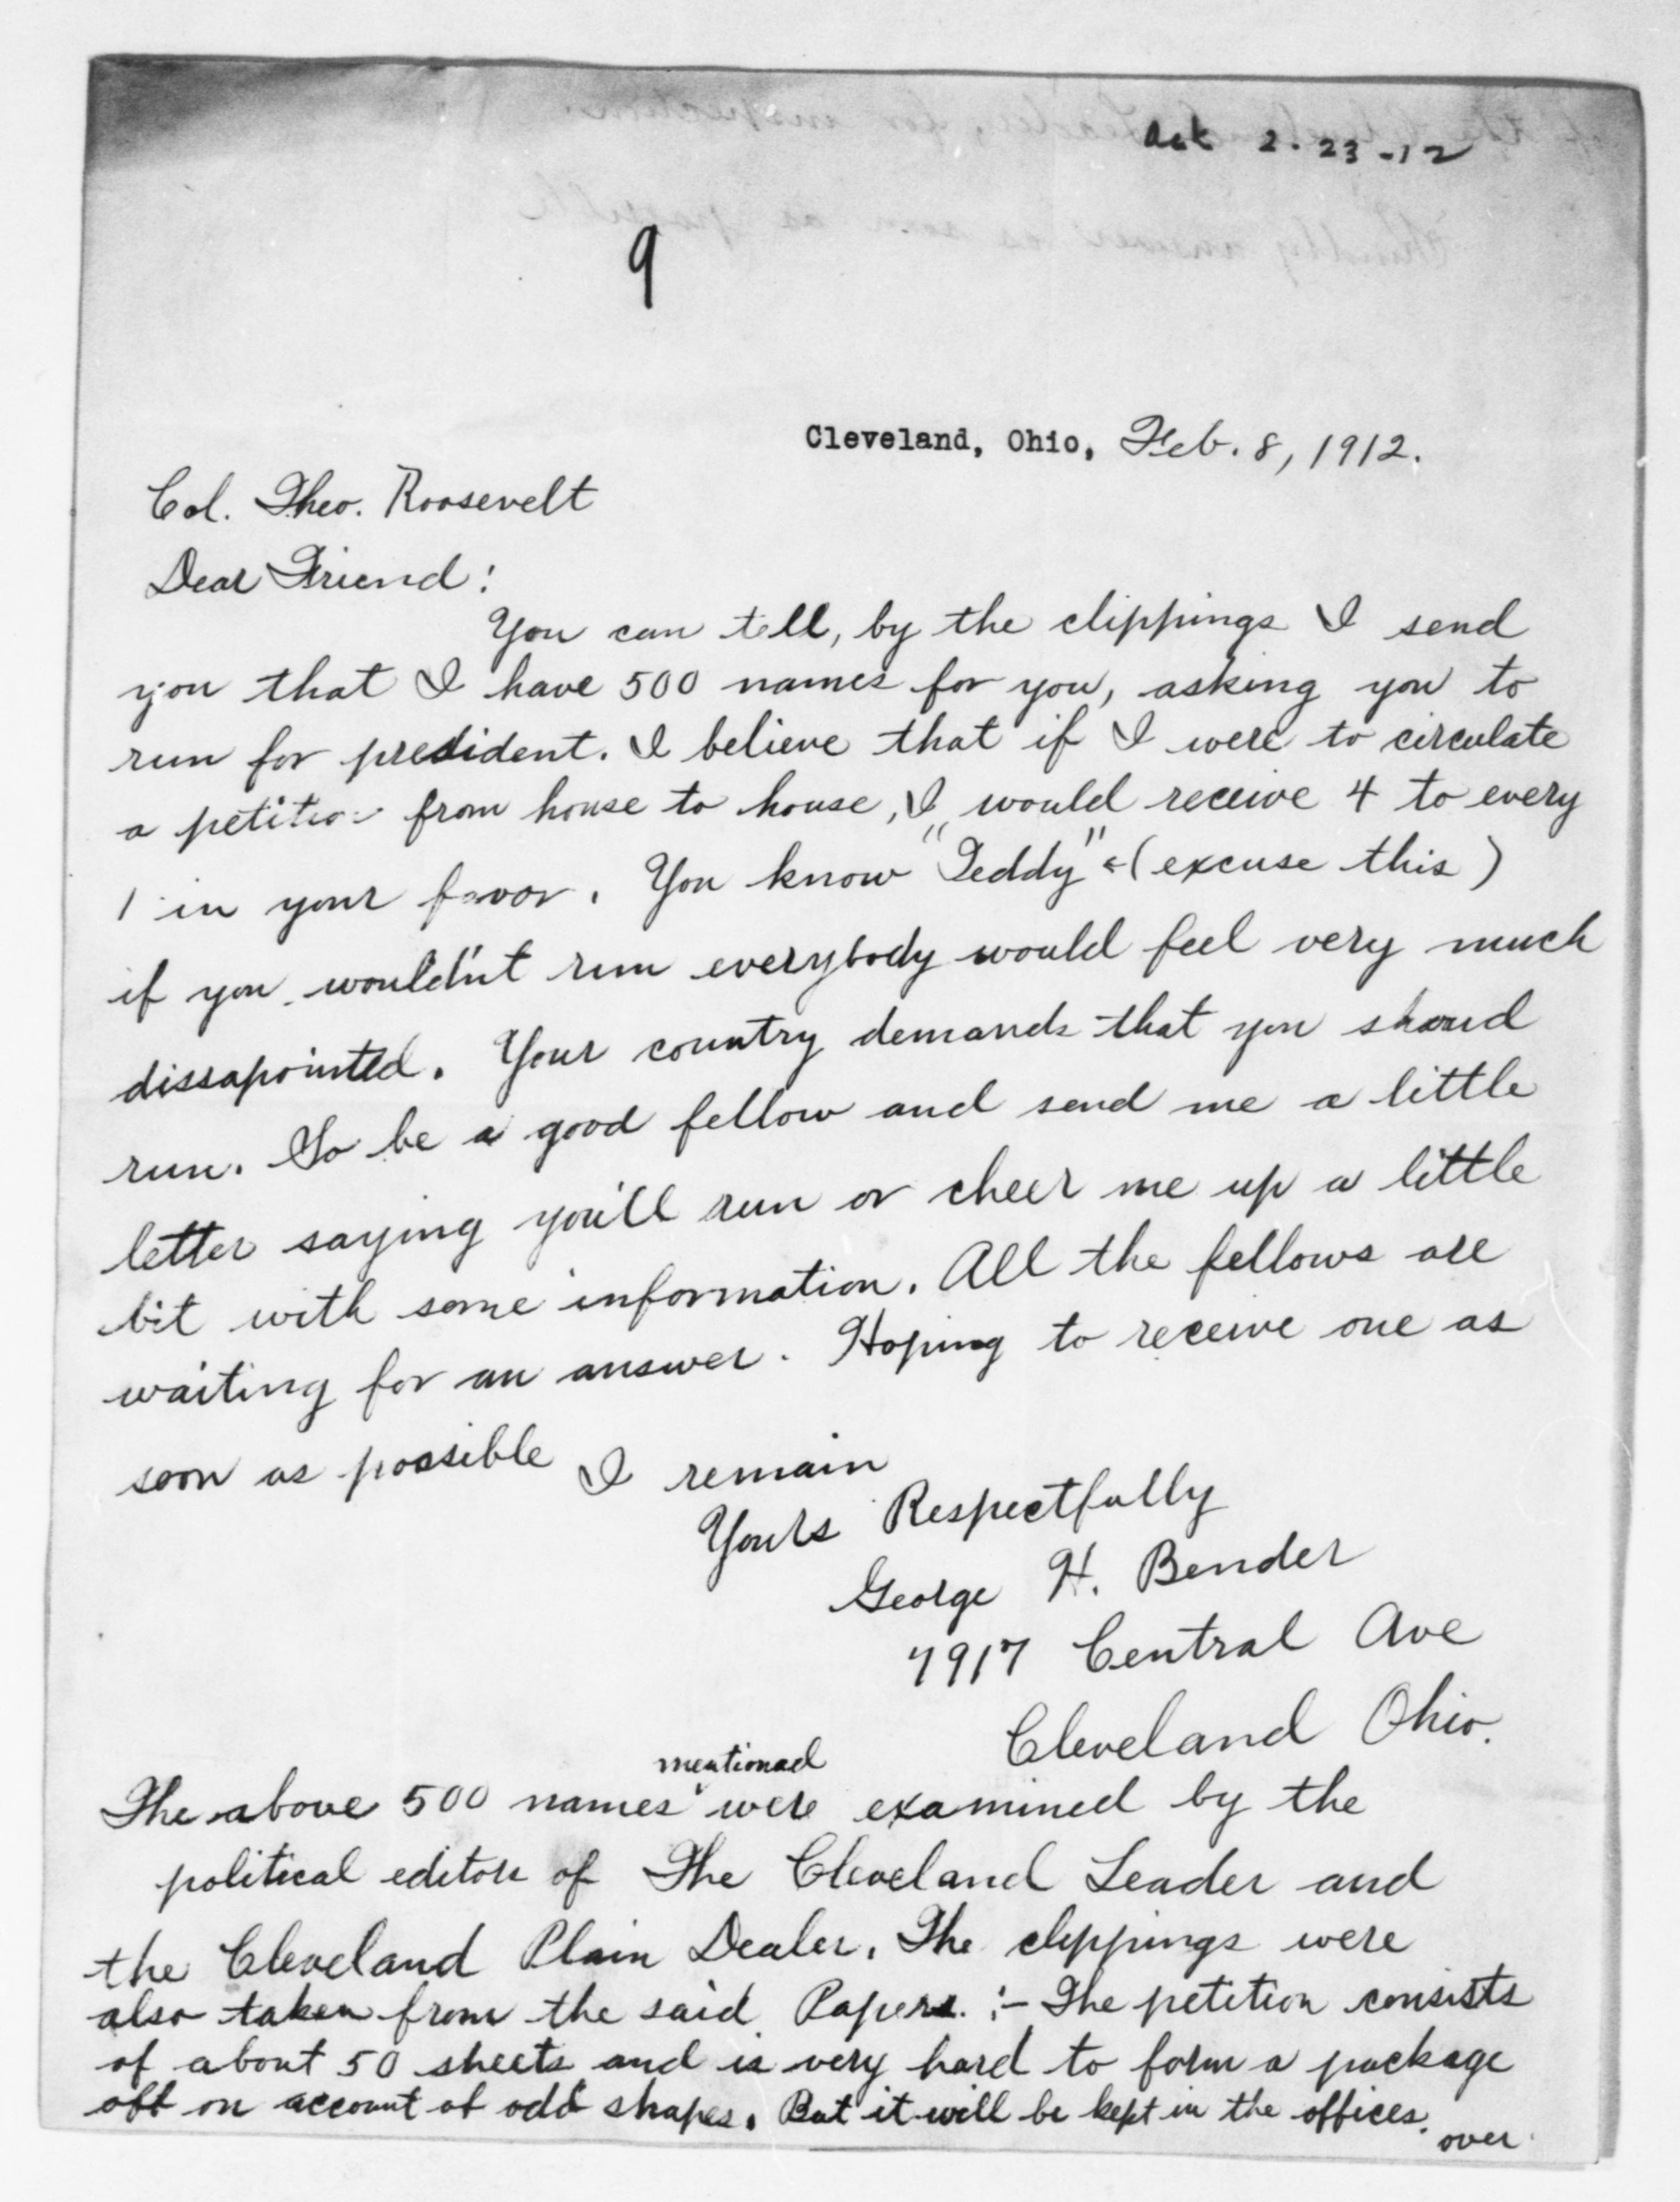 Ack 2.23-12
9
Cleveland, Ohio, Feb. 8, 1912.
Col. Theo. Roosevelt
Dear Friend:
You can tell, by the clippings I send
you that I have 500 names for you, asking you to
run for president. I believe that if I were to circulate
a petition from house to house, I would receive 4 to every
1 in your favor. You know "Teddy" (excuse this)
if you wouldn't run everybody would feel very much
dissapointed. Your country demands that you shoud
run. So be a good fellow and send me a little
letter saying you'll run or cheer me up a little
bit with some information. All the fellows are
waiting for an answer. Hoping to receive one as
soon as possible I remain
Yours Respectfully
George H. Bender
7917 Central Ave
Cleveland Ohio.
mentioned
The above 500 names were examined by the
political editors of The Cleveland Leader and
the Cleveland Plain Dealer. The clippings were
also taken from the said Papers. :- The petition consists
of about 50 sheets and is very hard to form a package
off on account of odd shapes. But it will be kept in the offices.
over